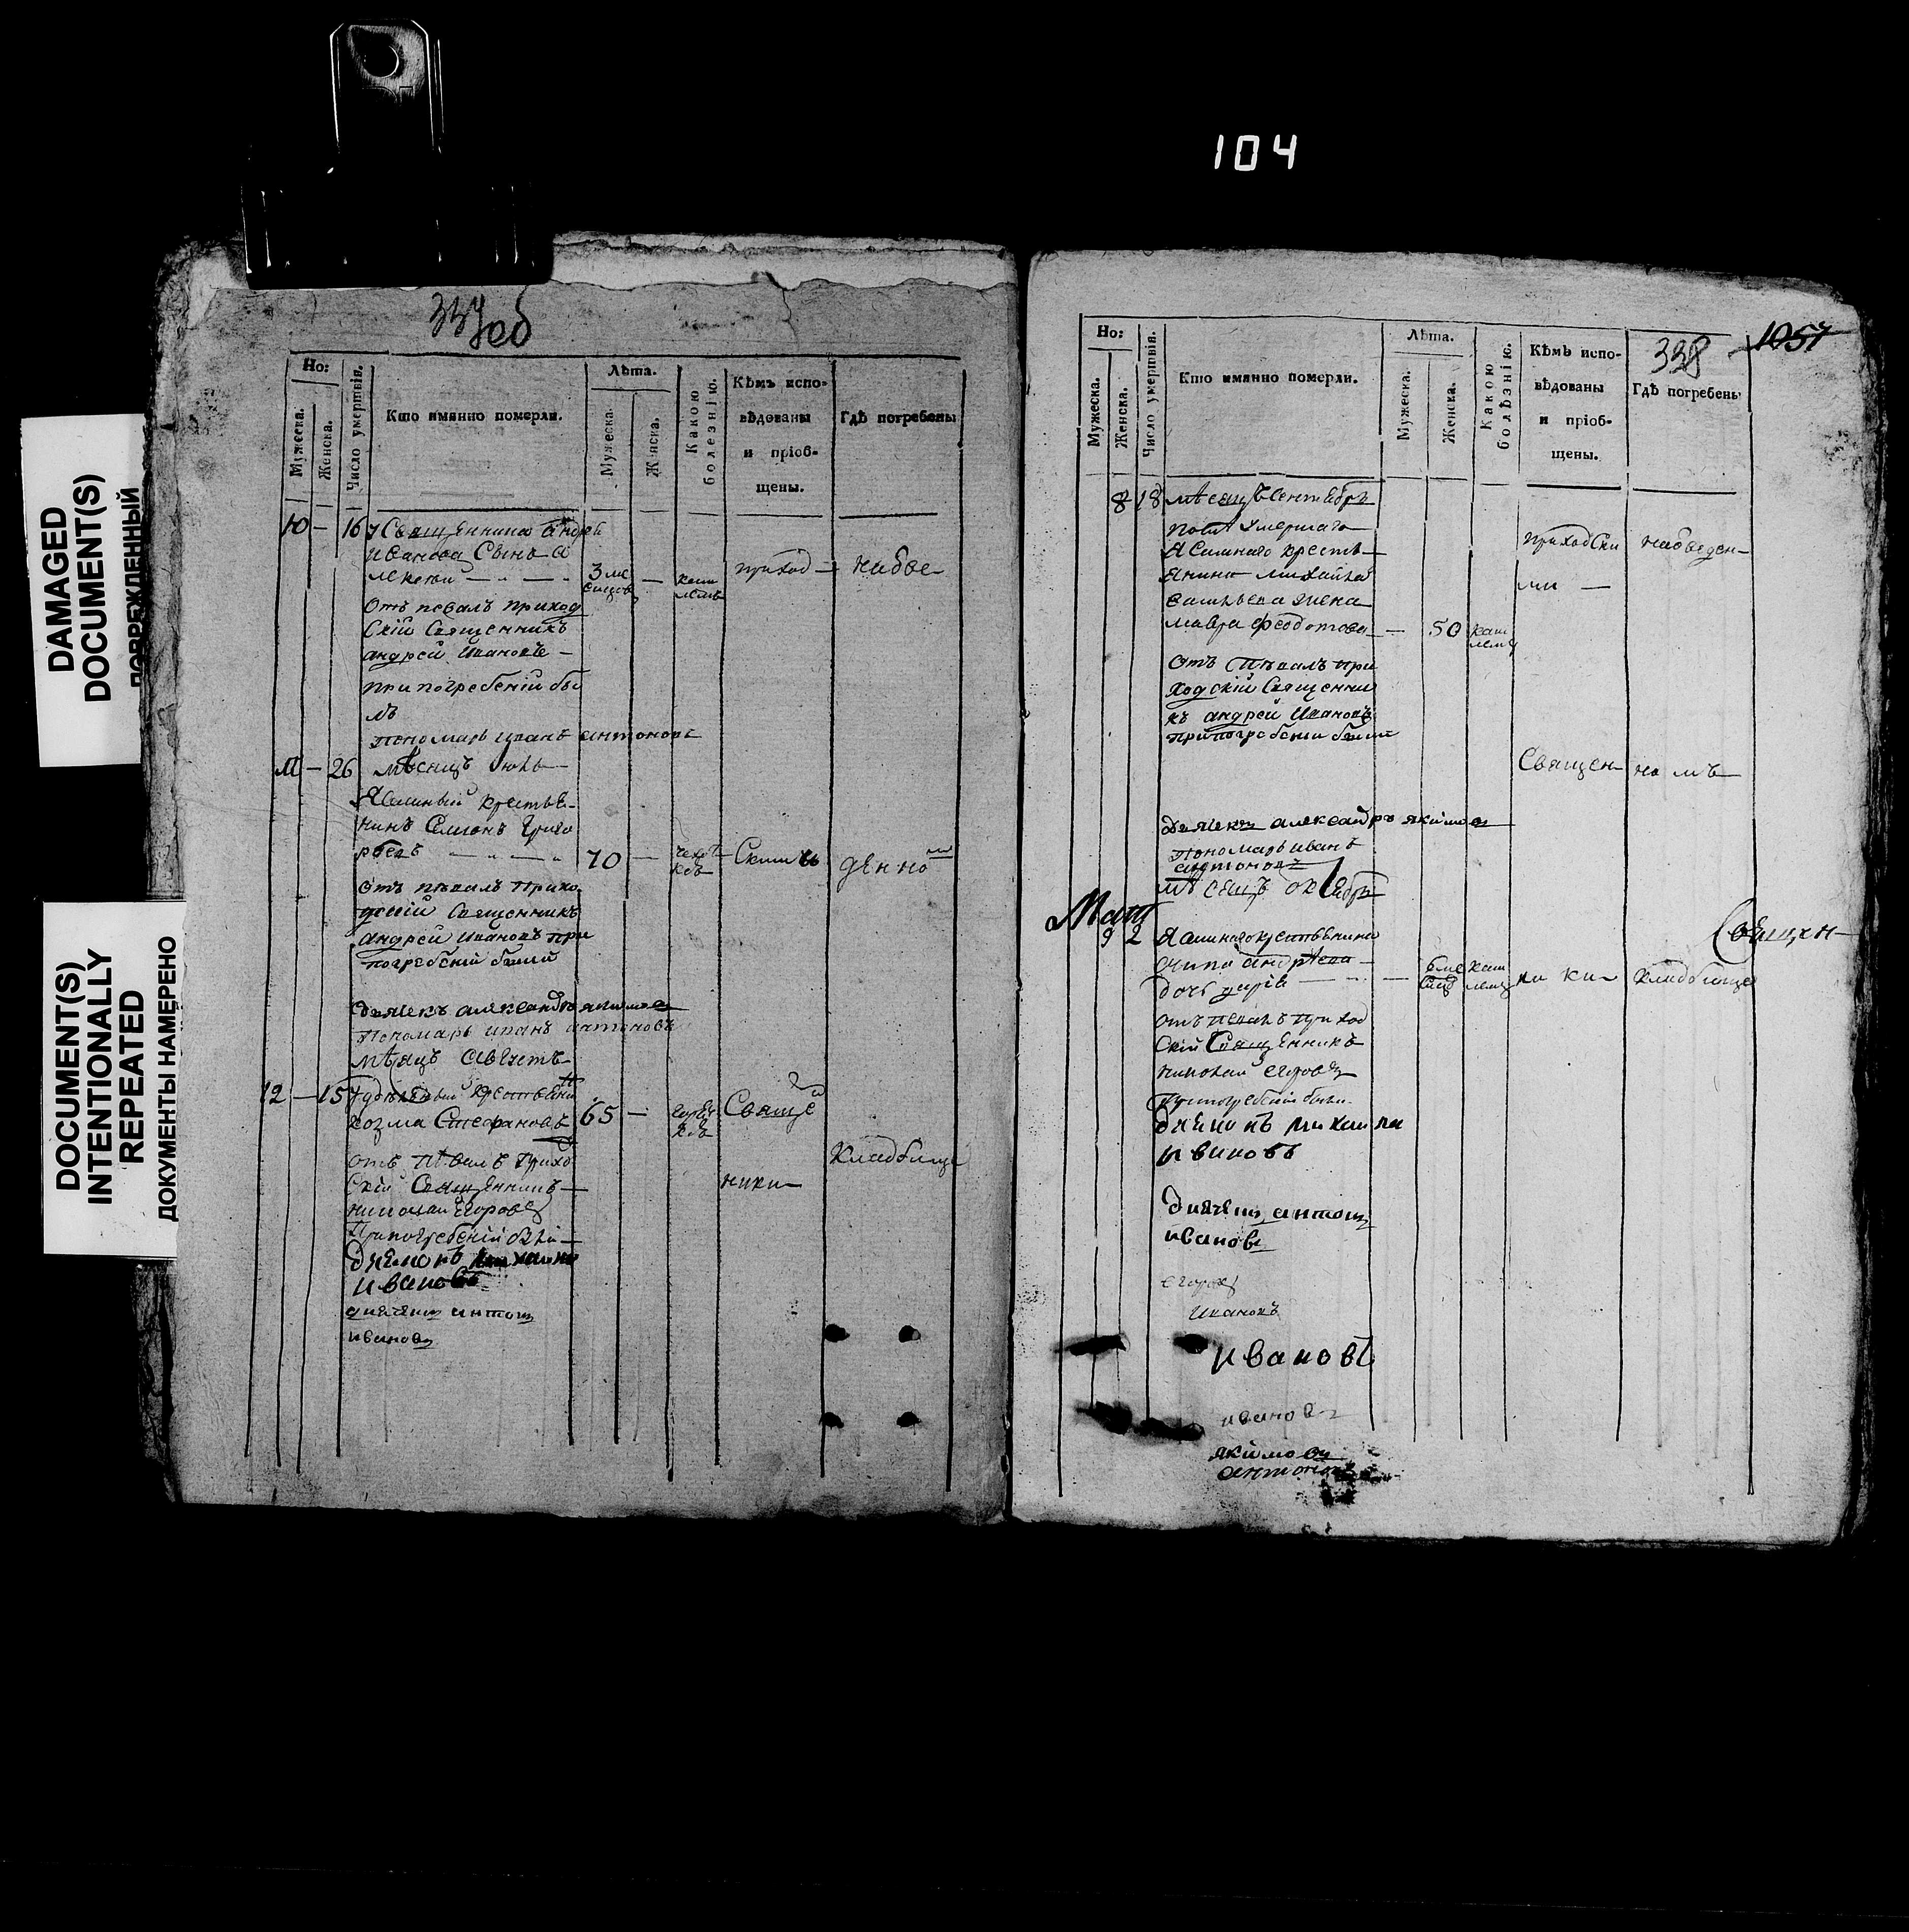 104
DAMAGED
DOCUMENT(S)
ПОВРЕЖДЕННЫЙ
DOCUMENT(S)
INTENTIONALLY
REPEATED
ДОКУМЕНТЫ НАМЕРЕНО
337об
Но:
Мужеска.
Женска.
Число умертвія.
Кто имянно померли.
Лѣта.
Мужеска.
Женска.
Какою
болезнію.
Кѣмъ испо-
вѣдованы
и пріоб-
щены.
Гдѣ погребены
10 — 16 У Священника Андрей
Иванова Сынъ а
лекѣй — 3 ме
сецов — каш
лемъ приход — на бве
Отъ певалъ приход
скій Священникъ
андрей Ивановъ —
при погребеніи бы
лъ
пономарь иванъ антоновъ
11 — 26 мѣсяцъ іюль
Ясашный крестья
нинъ Семіонъ Григо
рьевъ — 70 — чехот
кою Ским денно
отъ пѣвалъ прихо
дскій Священникъ
андрей Ивановъ при
погребеніи были
дьячекъ александръ якимов
Пономарь иванъ антоновъ
мѣяцъ август
12 — 15 Удѣльный крестьяни
Козма Стефановъ 65 — горяч
кою Свяще
отъ пѣвалъ прихо
скій Священникъ
николай Егоровъ
ники
кладбище
При погребеніи были
дьяконъ михаила
ивановъ
дьячекъ антонъ
ивановъ
1057
338
Но:
Мужеска.
Женска.
Число умертвія.
Кто имянно померли.
Лѣта.
Мужеска.
Женска.
Какою
болѣзнію.
Кѣмъ испо-
вѣдованы
и пріоб-
щены.
Гдѣ погребены
8 18 мѣсяцъ Сентябрь
умершаго
Ясашнаго кресть
янина михайла
васильева жена
мавра феодотова — 50 каш
лемъ
приходски
ми —
на бведен
отъ пѣвалъ при
ходскій Священни
къ андрей Ивановъ
при погребеніи были
Священ номъ
дьячекъ александръ якимов
Пономарь иванъ
антоновъ
мѣсецъ октябрь
9 2 Ясашнаго крестьянина
андреева
дочь дарія — 6 ме
сецов каш
лемъ ни ки кладбище
Священ
отъ певалъ приход
скій Священникъ
николай егоровъ
При погребеніи были
дьяконъ михаила
ивановъ
дьячекъ антонъ
ивановъ
егоровъ
Ивановъ
ивановъ
ивановъ
якимовъ
антоновъ